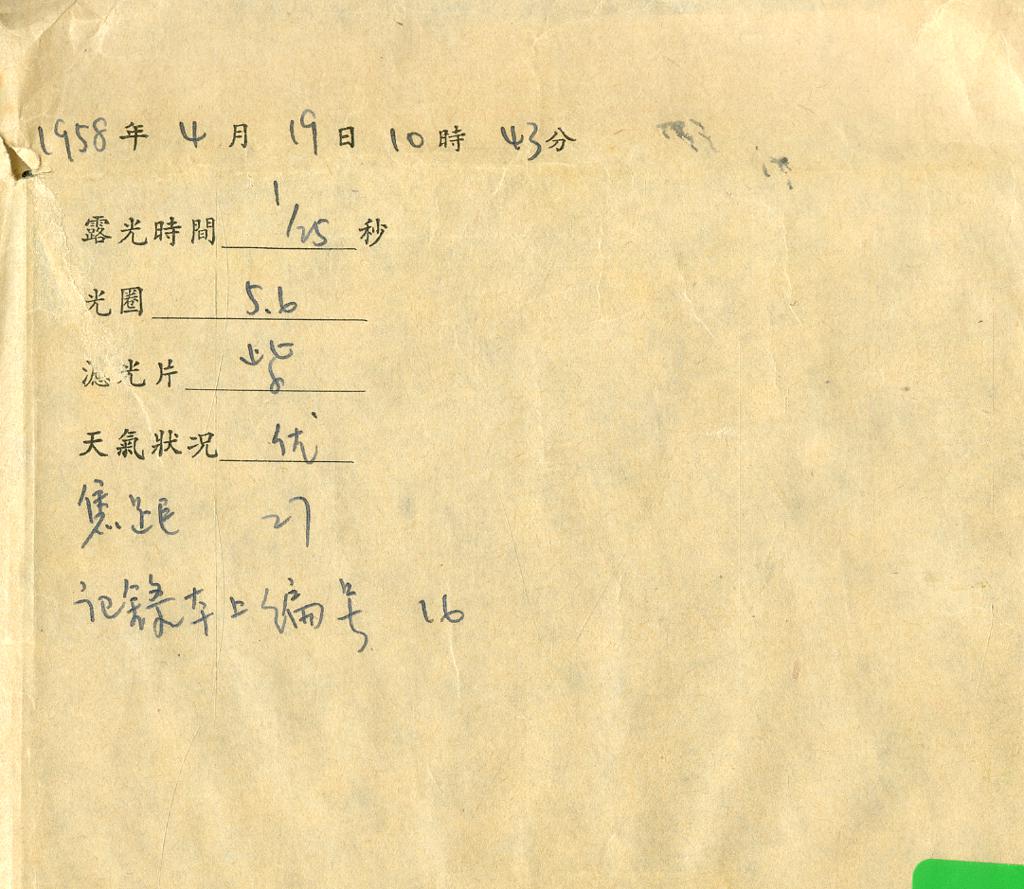 1958年 4月 19日 10時 43分
露光時間 1/25 秒
光圈 5.6
濾光片 紫
天氣狀况 优
焦距 27
记錄本上编号 16